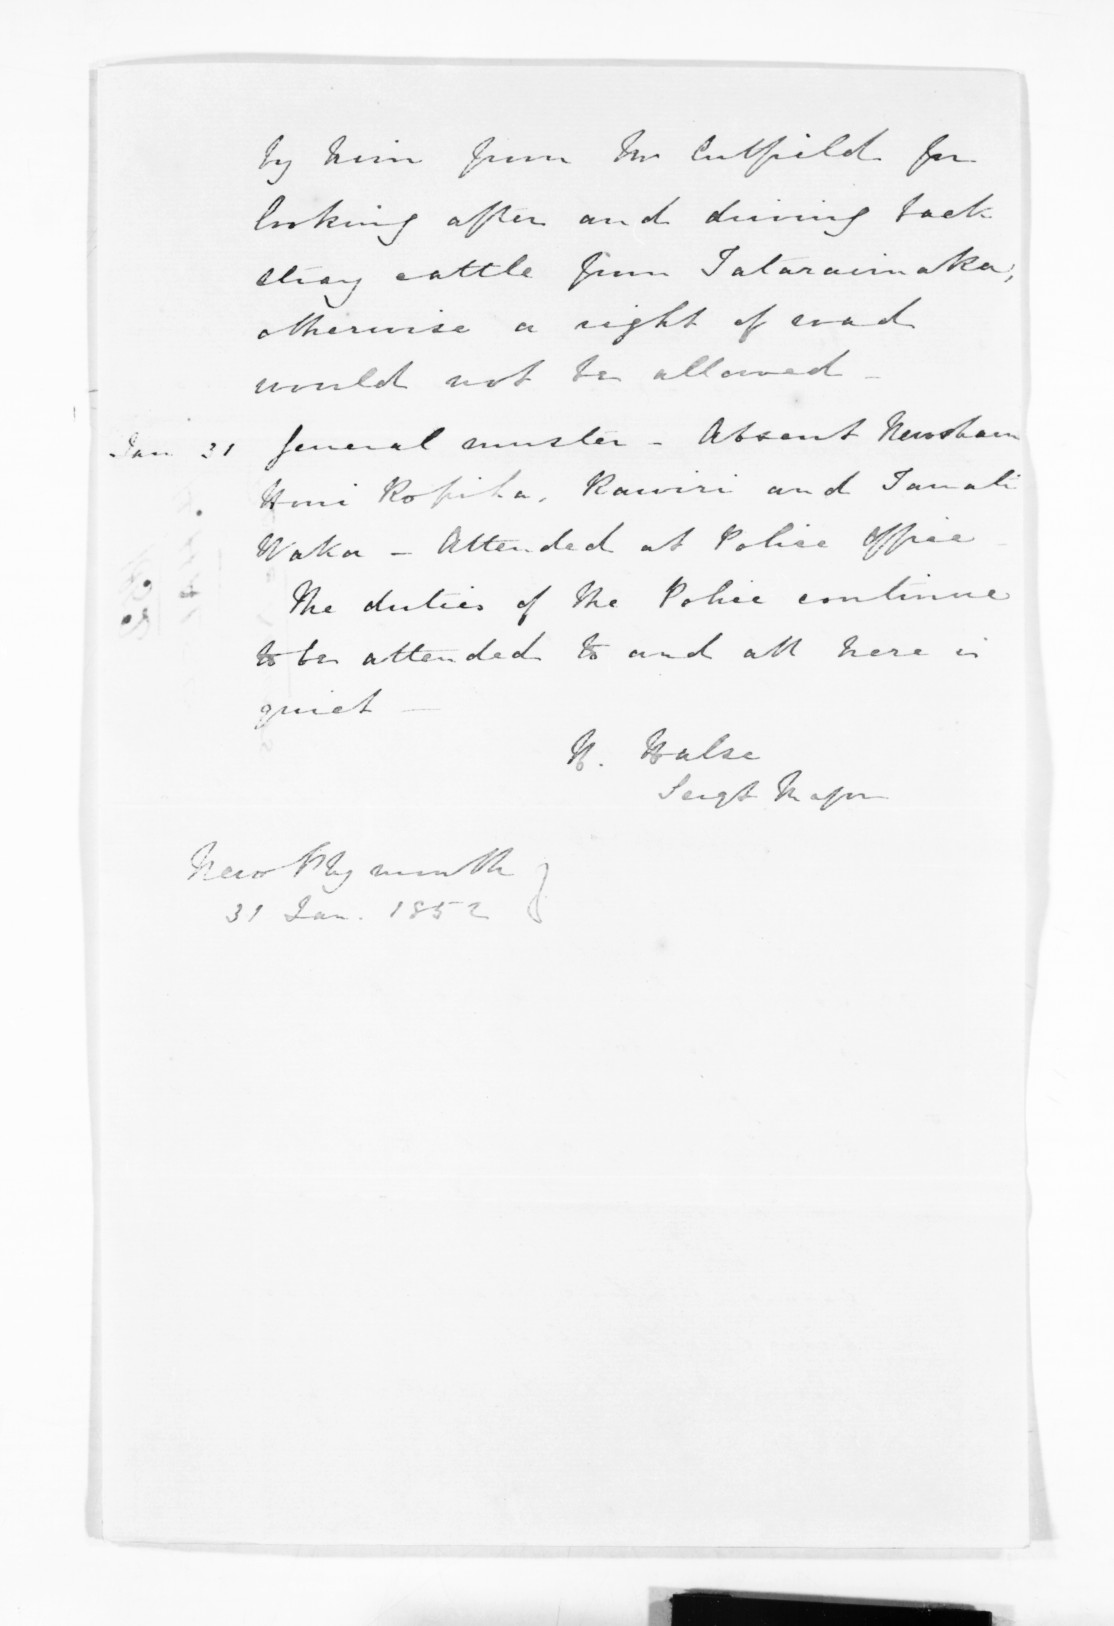 by him from Mr Cutfield for
looking after and driving back
stray cattle from Tataraimaka,
otherwise a right of road
would not be allowed -
Jan 31 General muster - Absent Newsham
Honi Ropiha, Rawiri and Tamati
Waka - Attended at Police Office -
The duties of the Police continue
to be attended to and all here is
quiet -
H. Halse
Sergt Major
New Plymouth }
31 Jan. 1852